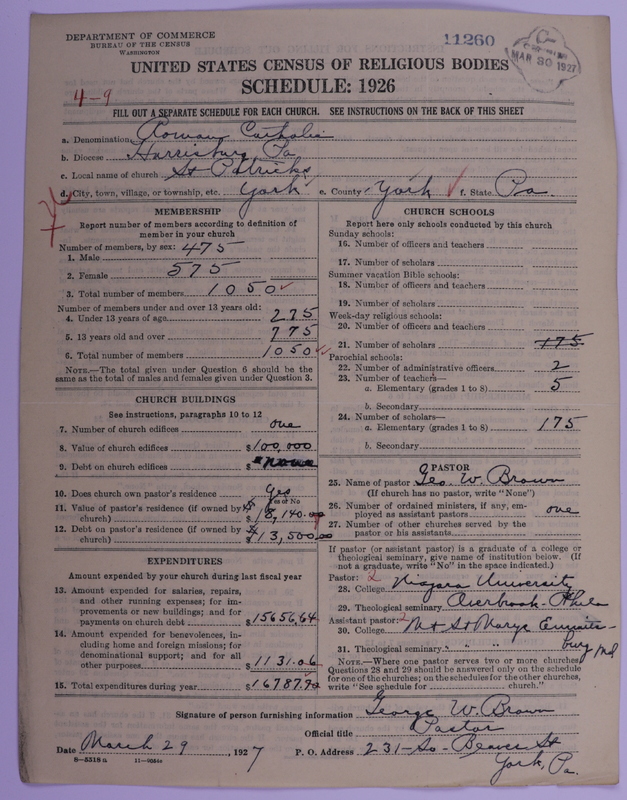 DEPARTMENT OF COMMERCE
BUREAU OF THE CENSUS
WASHINGTON
11260
MAR 30 1927
UNITED STATES CENSUS OF RELIGIOUS BODIES
SCHEDULE: 1926
4-9
FILL OUT A SEPARATE SCHEDULE FOR EACH CHURCH. SEE INSTRUCTIONS ON THE BACK OF THIS SHEET
a. Denomination Roman Catholic
b. Diocese Harrisburg Pa
c. Local name of church St Patricks
d. City, town, village, or township, etc. York e. County York f. State Pa.
MEMBERSHIP
Report number of members according to definition of
member in your church
Number of members, by sex:
1. Male 475
2. Female 575
3. Total number of members 1050
Number of members under and over 13 years old:
4. Under 13 years of age 275
5. 13 years old and over 775
6. Total number of members 1050
NOTE.—The total given under Question 6 should be
same as the total of males and females given under Question 3.
CHURCH BUILDINGS
See instructions, paragraphs 10 to 12
7. Number of church edifices one
8. Value of church edifices $100,000
9. Debt on church edifices $ none
10. Does church own pastor's residence Yes
Yes or No
11. Value of pastor's residence (if owned by
church) $18,140.00
12. Debt on pastor's residence (if owned by
church) $13,500.00
EXPENDITURES
Amount expended by your church during last fiscal year
13. Amount expended for salaries, repairs,
and other running expenses; for im-
provements or new buildings; and for
payments on church debt $15656.64
14. Amount expended for benevolences, in-
cluding home and foreign missions; for
denominational support; and for all
other purposes $1131.06
15. Total expenditures during year $16787.70
CHURCH SCHOOLS
Report here only schools conducted by this church
Sunday schools:
16. Number of officers and teachers
17. Number of scholars
Summer vacation Bible schools:
18. Number of officers and teachers
19. Number of scholars
Week-day religious schools:
20. Number of officers and teachers
21. Number of scholars 175
Parochial schools:
22. Number of administrative officers 2
23. Number of teachers—
a. Elementary (grades 1 to 8) 5
b. Secondary
24. Number of scholars—
a. Elementary (grades 1 to 8) 175
b. Secondary
PASTOR
25. Name of pastor Geo. W. Brown
(If church has no pastor, write "None")
26. Number of ordained ministers, if any, em-
ployed as assistant pastors one
27. Number of other churches served by the
pastor or his assistants
If pastor (or assistant pastor) is a graduate of a college or
theological seminary, give name of institution below. (If
not a graduate, write "No" in the space indicated.)
Pastor: 2
28. College Niagara University
29. Theological seminary Overbrook-Phila
Assistant pastor: 2
30. College Mt St Marys Emmits-
31. Theological seminary " " " burg Md
NOTE.—Where one pastor serves two or more churches
Questions 28 and 29 should be answered only on the schedule
for one of the churches; on the schedules for the other churches,
write "See schedule for church."
Signature of person furnishing information George W. Brown
Official title Pastor
Date March 29, 1927 P. O. Address 231-So-Beaver St
York, Pa.
8-5518 a